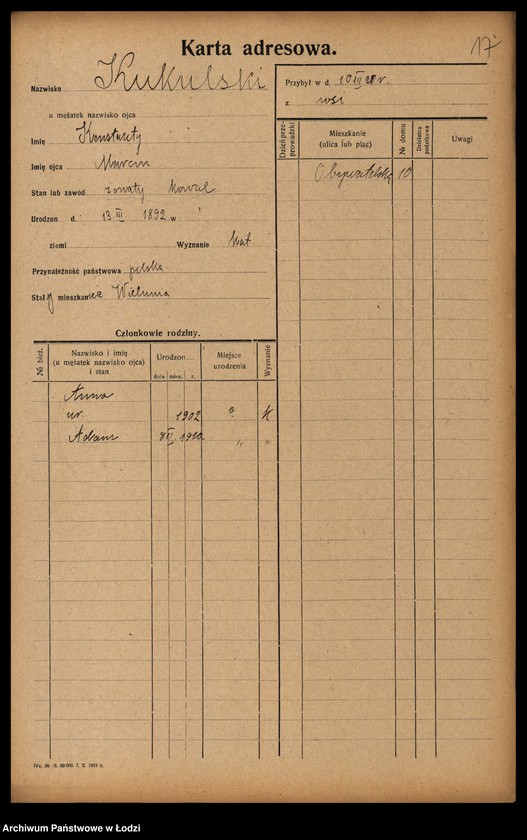 Karta adresowa.
17
Nazwisko Kukulski
u mężatek nazwisko ojca
Imię Konstanty
Imię ojca Marcin
Stan lub zawód żonaty kowal
Urodzon d. 13 III 1892 w
ziemi Wyznanie kat.
Przynależność państwowa polska
Stały mieszkaniec Wielunia
Przybył w d. 10 III r.
z wsi
Dzień przeprowadzki
Mieszkanie
(ulica lub plac)
№ domu
Dzielnica podatkowa
Uwagi
Obywatelska 10
Członkowie rodziny.
№ bież.
Nazwisko i imię
(u mężatek nazwisko ojca)
i stan
Urodzon
dnia mies. r.
Miejsce
urodzenia
Wyznanie
Anna
ur. 1902 K
Adam 8 1920 " "
Wz. № 18. 60 000. 7. X. 1919 r.
Archiwum Państwowe w Łodzi